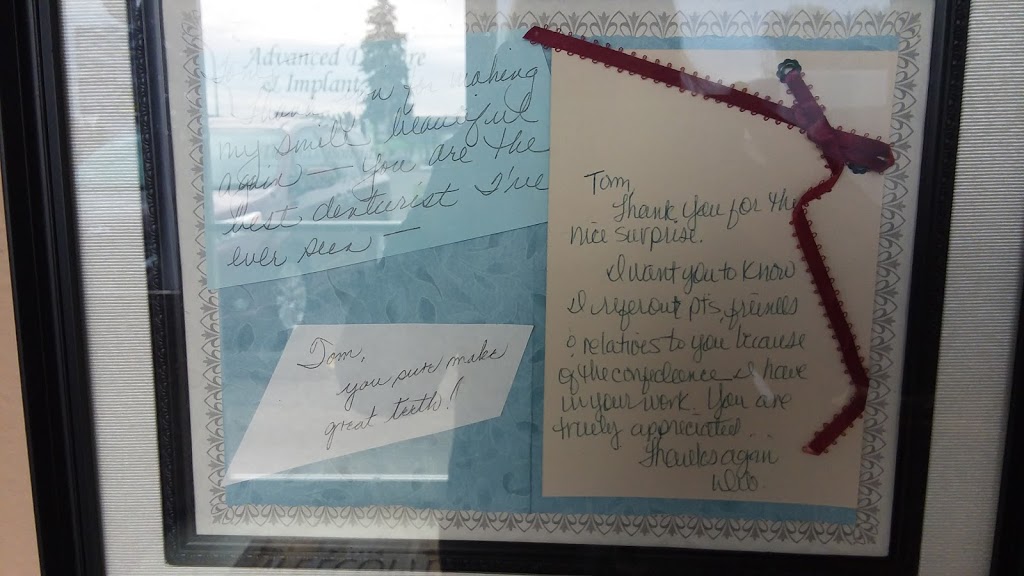 Advanced Denture
& Implant
making
my smile beautiful
again — you are the
best denturist I've
ever seen —
Tom,
you sure make
great teeth!!
Tom
Thank you for the
nice surprise.
I want you to know
I refer out pts, friends
& relatives to you because
of the confidence I have
in your work. You are
truly appreciated...
Thanks again